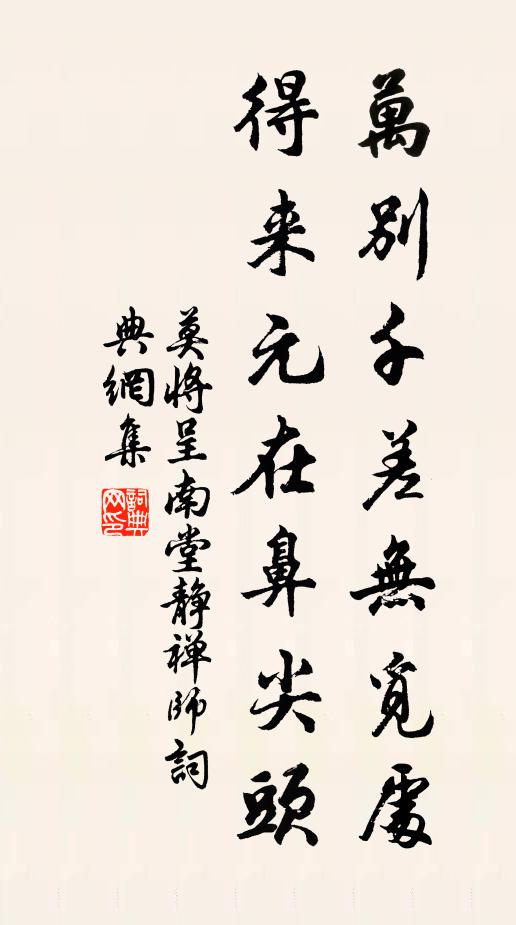 萬別千差無覓處
得来元在鼻尖頭
莫將呈南堂静禅師詞
典網集
詞典
网印